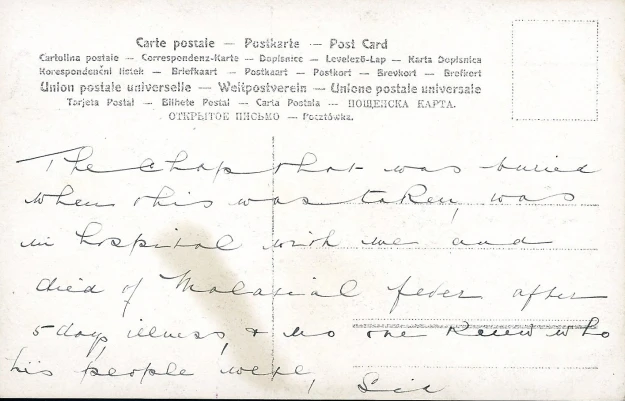 Carte postale — Postkarte — Post Card
Cartolina postale — Correspondenz-Karte — Dopisnice — Levelező-Lap — Karta Dopisnica
Korespondenční lístek — Briefkaart — Postkaart — Postkort — Brevkort — Brefkort
Union postale universelle — Weltpostverein — Unione postale universale
Tarjeta Postal — Bilhete Postal — Carta Postala — ПОЩЕНСКА КАРТА.
ОТКРЫТОЕ ПИСЬМО — Pocztówka.
The chap that was buried
when this was taken, was
in hospital with me and
died of Malarial fever after
5 days illness, & no one knew who
his people were,